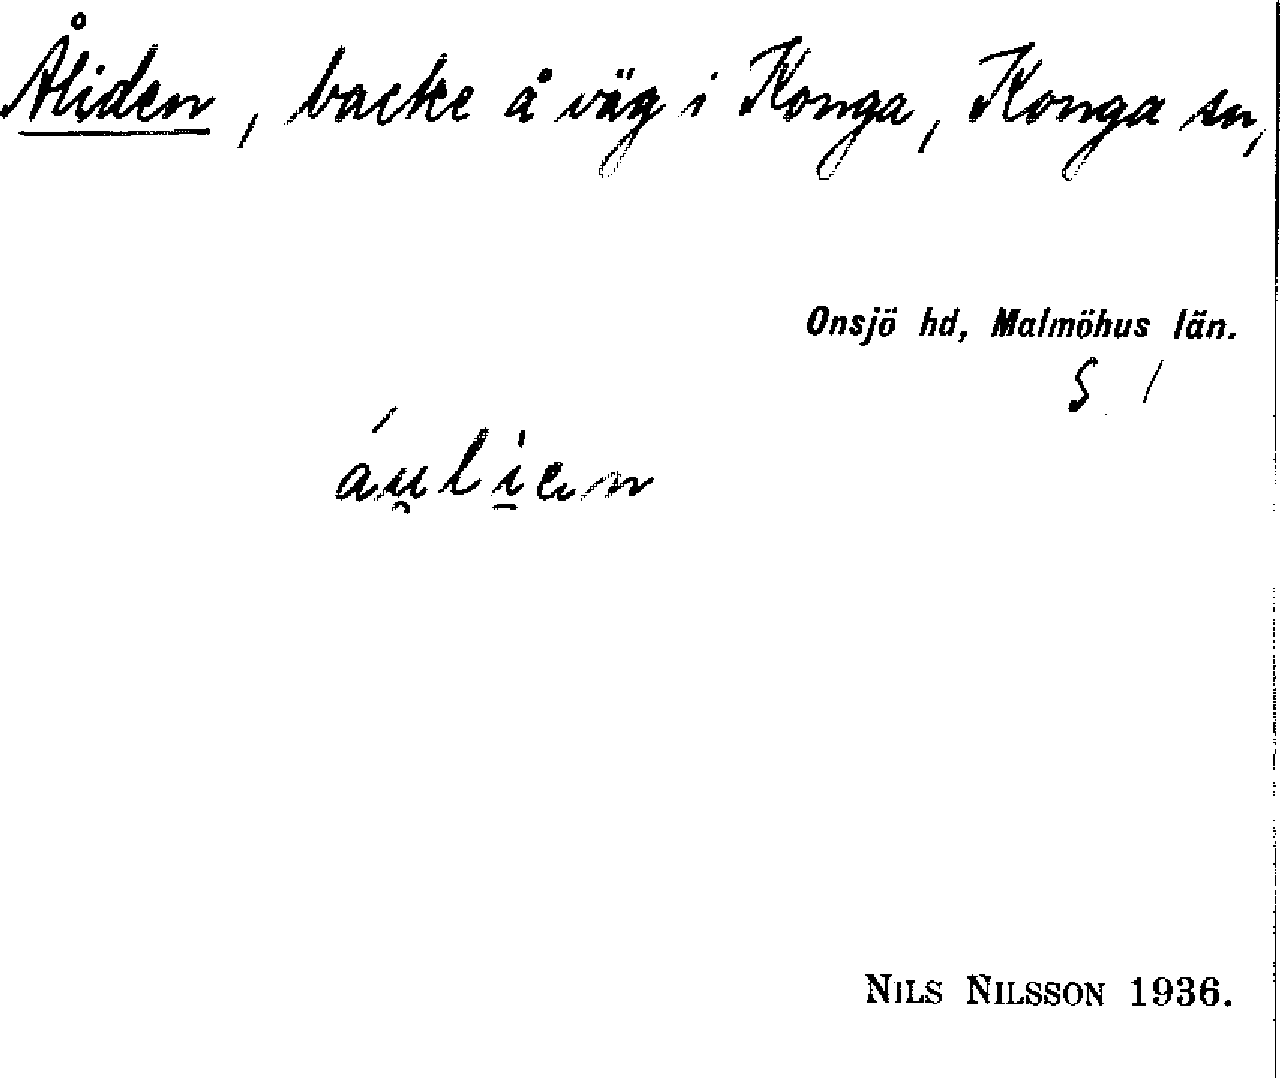 Åliden, backe å väg i Konga, Konga sn,
Onsjö hd, Malmöhus län.
S 1
áu̯li̱en
NILS NILSSON 1936.